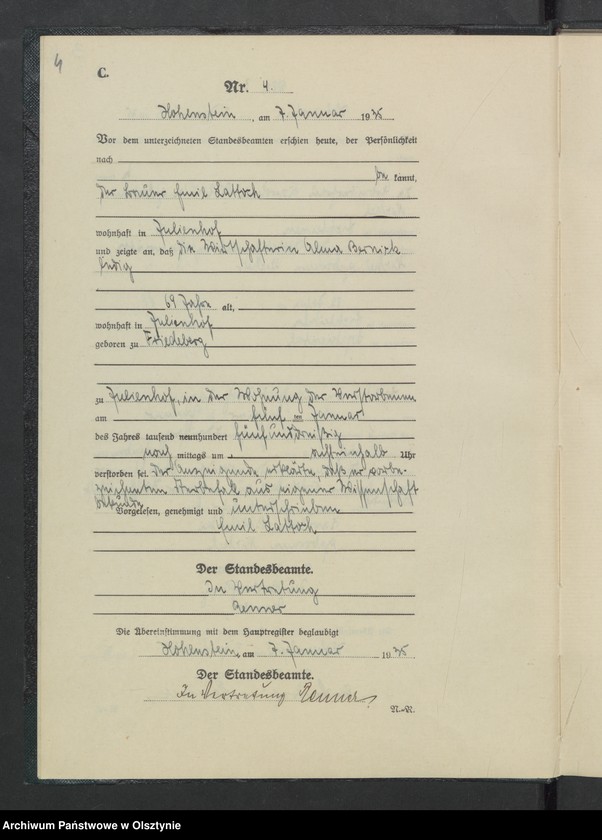 4
C.
Nr. 4.
Hohenstein, am 7. Januar 1935
Vor dem unterzeichneten Standesbeamten erschien heute, der Persönlichkeit
nach
be kannt,
der Emil Lattoch
wohnhaft in Julienhof
und zeigte an, daß die Wirtschafterin Alma Bernick
ledig
69 Jahre alt,
wohnhaft in Julienhof
geboren zu Friedeberg
zu Julienhof, in der Wohnung der Verstorbenen
am fünften Januar
des Jahres tausend neunhundert fünfunddreißig
nach mittags um achteinhalb Uhr
verstorben sei. Der Anzeigende erklärte, daß er vorbe-
zeichneten Sterbefall aus eigener Wissenschaft
bekunde.
Vorgelesen, genehmigt und unterschrieben
Emil Lattoch
Der Standesbeamte.
In Vertretung
Renner
Die Übereinstimmung mit dem Hauptregister beglaubigt
Hohenstein, am 7. Januar 1935
Der Standesbeamte.
In Vertretung Renner
Archiwum Państwowe w Olsztynie